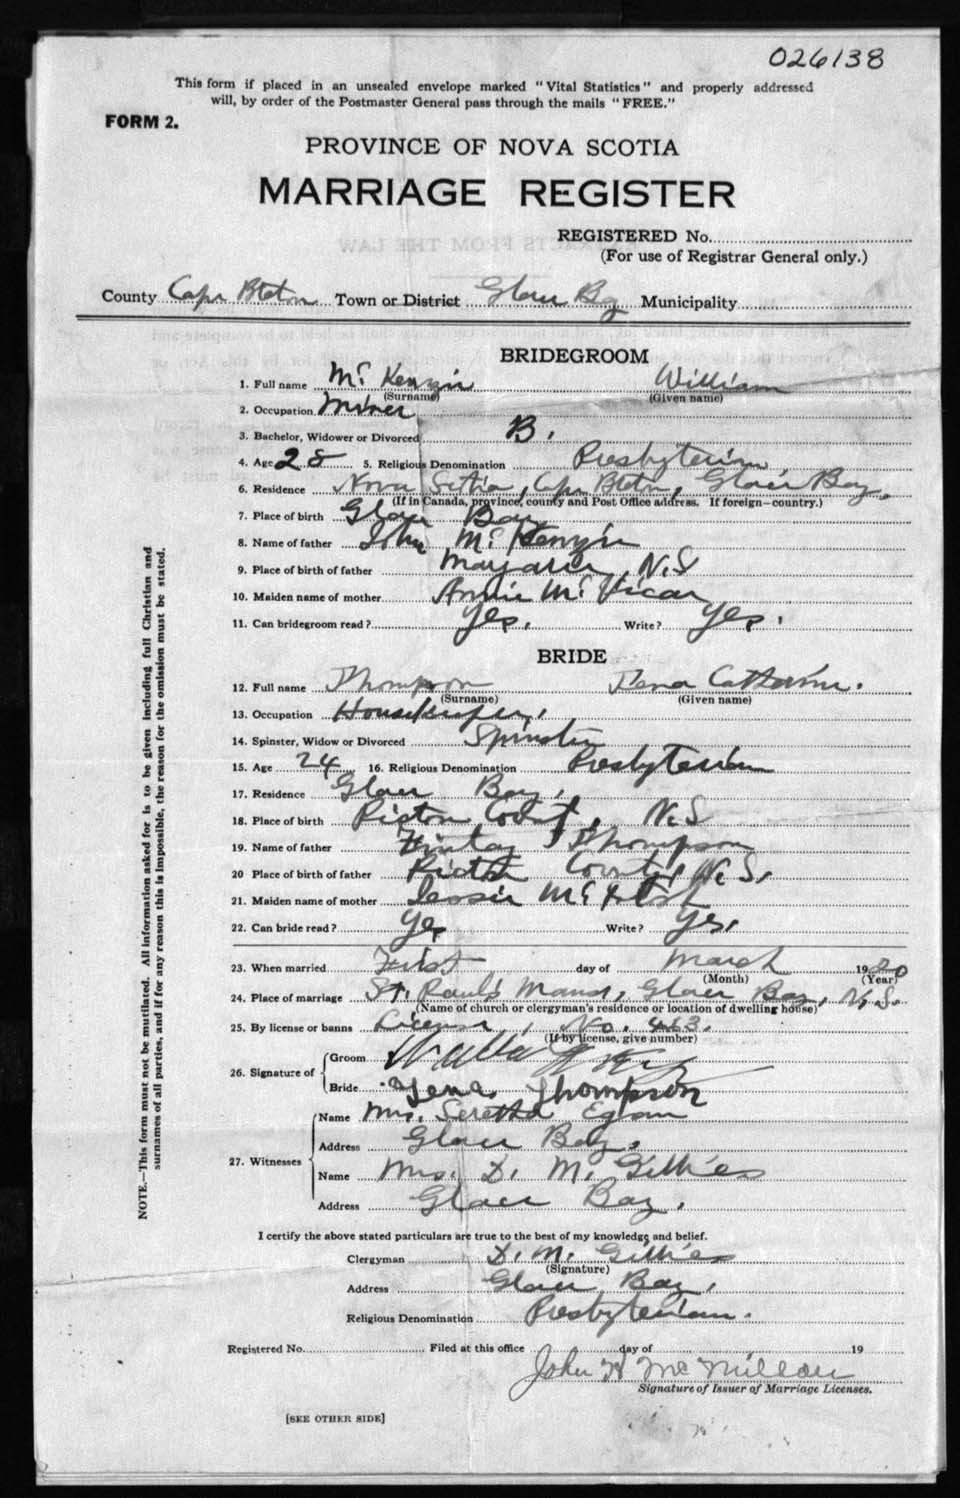 026138
This form if placed in an unsealed envelope marked "Vital Statistics" and properly addressed
will, by order of the Postmaster General pass through the mails "FREE."
FORM 2.
PROVINCE OF NOVA SCOTIA
MARRIAGE REGISTER
REGISTERED No.
(For use of Registrar General only.)
County Cape Breton Town or District Glace Bay Municipality
BRIDEGROOM
1. Full name McKenzie William
(Surname) (Given name)
2. Occupation Miner
3. Bachelor, Widower or Divorced B.
4. Age 28 5. Religious Denomination Presbyterian
6. Residence Nova Scotia, Cape Breton, Glace Bay.
(If in Canada, province, county and Post Office address. If foreign—country.)
7. Place of birth Glace Bay
8. Name of father John McKenzie
9. Place of birth of father Margaree, N.S
10. Maiden name of mother Annie McVicar
11. Can bridegroom read? Yes. Write? Yes.
BRIDE
12. Full name Thompson Tena Catherine.
(Surname) (Given name)
13. Occupation Housekeeper.
14. Spinster, Widow or Divorced Spinster
15. Age 24 16. Religious Denomination Presbyterian
17. Residence Glace Bay.
18. Place of birth Pictou County, N.S
19. Name of father Finlay Thompson
20 Place of birth of father Pictou County, N.S.
21. Maiden name of mother Jessie
22. Can bride read? Yes Write? Yes.
23. When married First day of March 1920
(Month) (Year)
24. Place of marriage St. Paul's Manse, Glace Bay, N.S.
(Name of church or clergyman's residence or location of dwelling house)
25. By license or banns License, No. 463.
(If by license, give number)
26. Signature of
Groom
Bride Tena Thompson
27. Witnesses
Name Mrs. Seretha Egan
Address Glace Bay.
Name Mrs. D. M. Gillies
Address Glace Bay.
I certify the above stated particulars are true to the best of my knowledge and belief.
Clergyman D. M. Gillies
(Signature)
Address Glace Bay.
Religious Denomination Presbyterian.
Registered No. Filed at this office day of 19
John McMillan
Signature of Issuer of Marriage Licenses.
[SEE OTHER SIDE]
NOTE.—This form must not be mutilated. All information asked for is to be given including full Christian and
surnames of all parties, and if for any reason this is impossible, the reason for the omission must be stated.